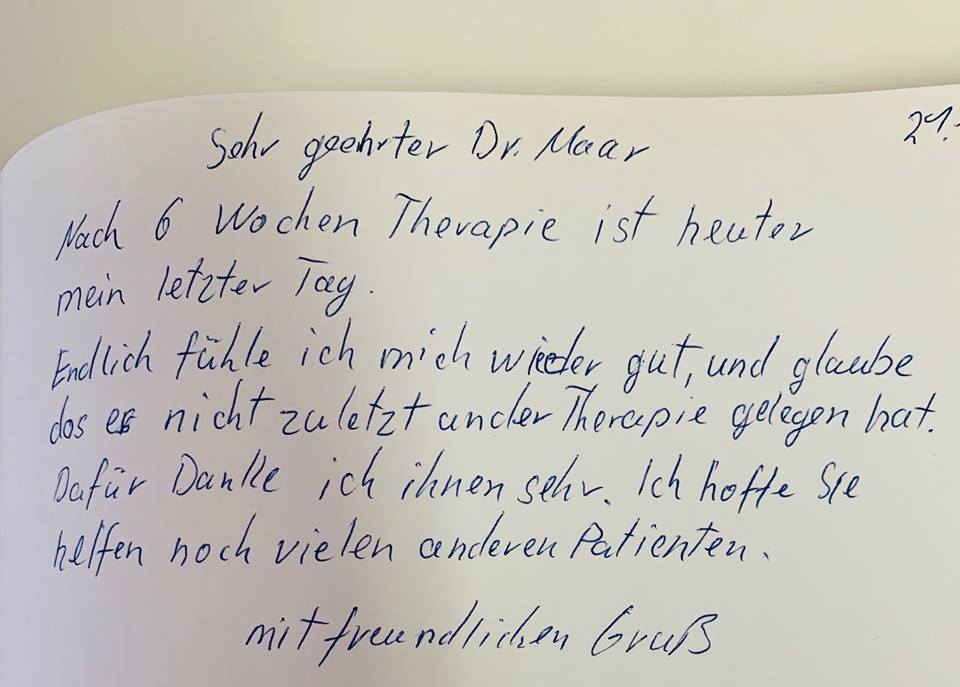 21.
Sehr geehrter Dr. Maar
Nach 6 Wochen Therapie ist heuter
mein letzter Tag.
Endlich fühle ich mich wieder gut, und glaube
das es nicht zuletzt an der Therapie gelegen hat.
Dafür Danke ich ihnen sehr. Ich hoffe Sie
helfen noch vielen anderen Patienten.
mit freundlichen Gruß